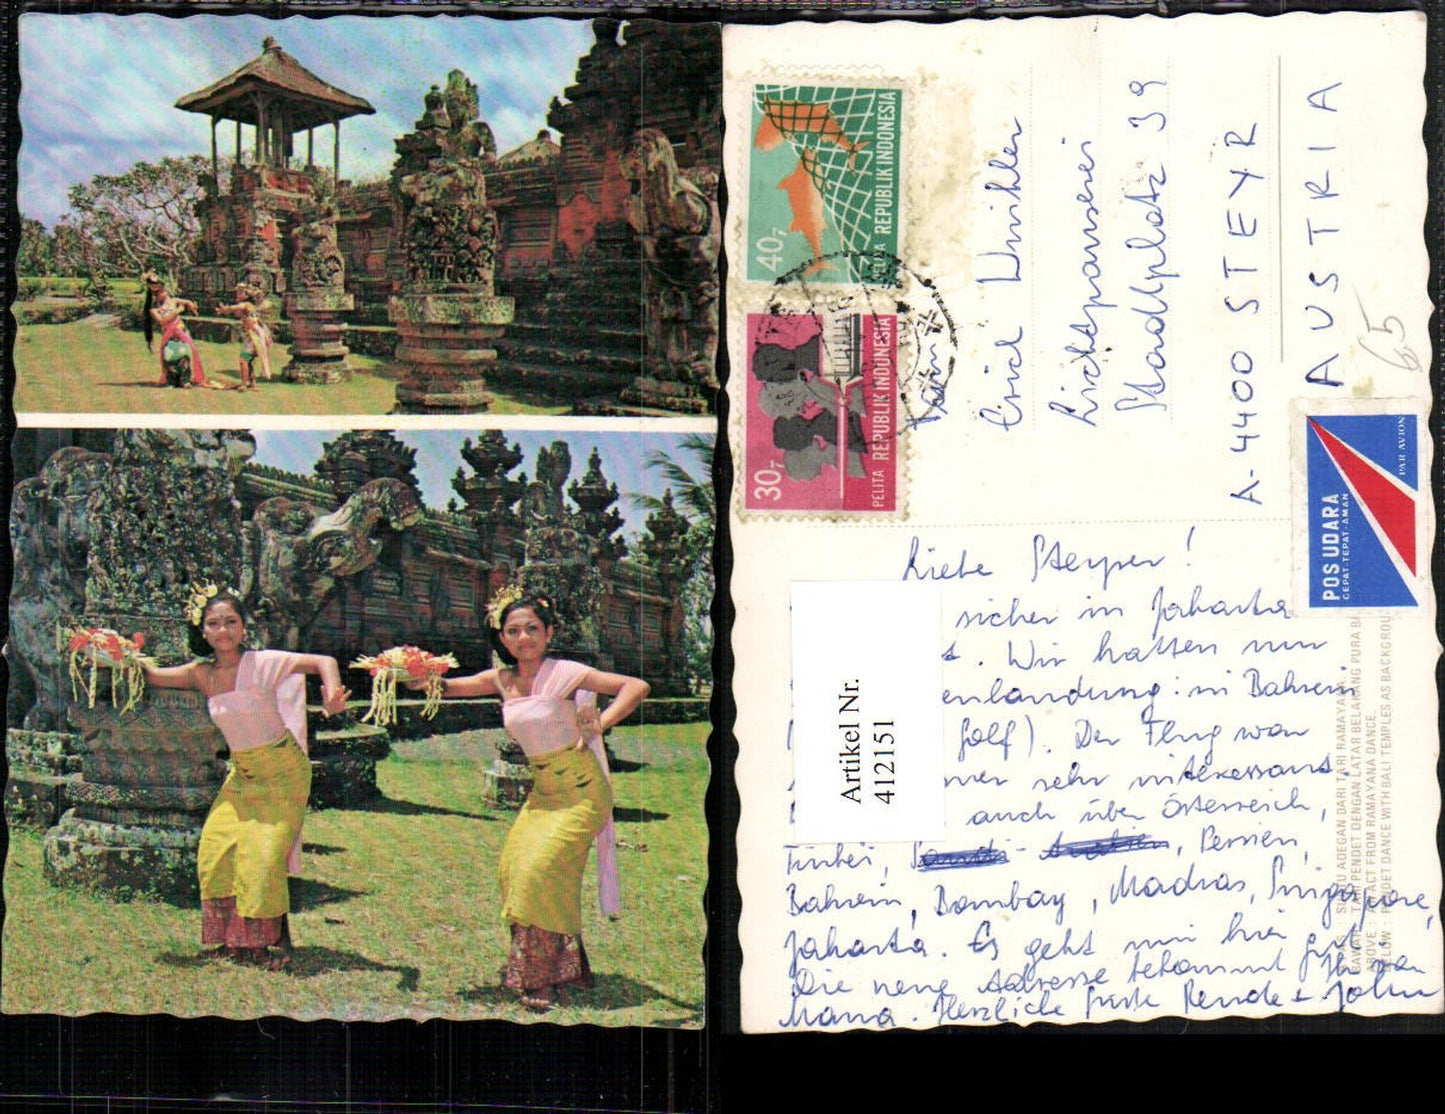 40,-
PELITA REPUBLIK INDONESIA
30,-
PELITA REPUBLIK INDONESIA
Erich Winkler
Lichtpauserei
Stadtplatz 39
A-4400 STEYR
AUSTRIA
65
POS UDARA
CEPAT-TEPAT-AMAN
PAR AVION
Liebe Steyrer!
sicher in Jakarta
t. Wir hatten nur
enlandung in Bahrein
Golf). Der Flug war
mer sehr interessant
auch über Österreich,
Türkei, Persien,
Bahrein, Bombay, Madras, Singapore,
Jakarta. Es geht mir hier gut.
Die neue Adresse bekommt Ihr von
Mama. Herzliche Grüße Renate + John
Artikel Nr.
412151
ADEGAN DARI TARI RAMAYANA.
TARI PENDET DENGAN LATAR BELAKANG PURA BA
ABOVE : ACT FROM RAMAYANA DANCE.
BELOW : PENDET DANCE WITH BALI TEMPLES AS BACKGROU